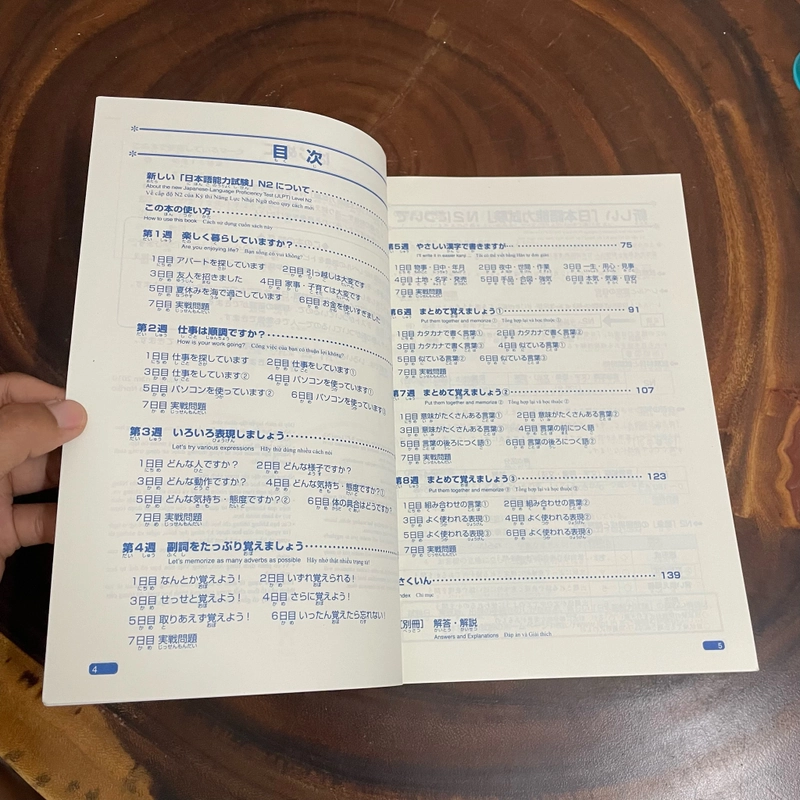 目 次
新しい「日本語能力試験」N2 について
About the new Japanese-Language Proficiency Test (JLPT) Level N2
Về cấp độ N2 của Kỳ thi Năng Lực Nhật Ngữ theo quy cách mới
この本の使い方
How to use this book Cách sử dụng cuốn sách này
第1週 楽しく暮らしていますか?
Are you enjoying life? Bạn sống có vui không?
1日目 アパートを探しています 2日目 引っ越しは大変です
3日目 友人を招きました 4日目 家事・子育ては大変です
5日目 夏休みを海で過ごしています 6日目 お金を使いすぎました
7日目 実戦問題
第2週 仕事は順調ですか?
How is your work going? Công việc của bạn có thuận lợi không?
1日目 仕事を探しています 2日目 仕事をしています①
3日目 仕事をしています② 4日目 パソコンを使っています①
5日目 パソコンを使っています② 6日目 パソコンを使っています③
7日目 実戦問題
第3週 いろいろ表現しましょう
Let's try various expressions Hãy thử dùng nhiều cách nói
1日目 どんな人ですか? 2日目 どんな様子ですか?
3日目 どんな動作ですか? 4日目 どんな気持ち・態度ですか?①
5日目 どんな気持ち・態度ですか?② 6日目 体の具合はどうですか?
7日目 実戦問題
第4週 副詞をたっぷり覚えましょう
Let's memorize as many adverbs as possible Hãy nhớ thật nhiều trạng từ
1日目 なんとか覚えよう! 2日目 いずれ覚えられる!
3日目 せっせと覚えよう! 4日目 さらに覚えよう!
5日目 取りあえず覚えよう! 6日目 いったん覚えたら忘れない!
7日目 実戦問題
4
第5週 やさしい漢字で書きますが… 75
1日目 物事・日中・年月 2日目 夜中・世間・作業 3日目 一生・用心・見事
4日目 土地・名字・発売 5日目 手品・合図・強気 6日目 本気・気楽・目安
7日目 実戦問題
第6週 まとめて覚えましょう① 91
Put them together and memorize ① Tổng hợp lại và học thuộc ①
1日目 カタカナで書く言葉① 2日目 カタカナで書く言葉②
3日目 カタカナで書く言葉③ 4日目 似ている言葉①
5日目 似ている言葉② 6日目 似ている言葉③
7日目 実戦問題
第7週 まとめて覚えましょう② 107
Put them together and memorize ② Tổng hợp lại và học thuộc ②
1日目 意味がたくさんある言葉① 2日目 意味がたくさんある言葉②
3日目 意味がたくさんある言葉③ 4日目 言葉の前につく語
5日目 言葉の後ろにつく語① 6日目 言葉の後ろにつく語②
7日目 実戦問題
第8週 まとめて覚えましょう③ 123
Put them together and memorize ③ Tổng hợp lại và học thuộc ③
1日目 組み合わせの言葉① 2日目 組み合わせの言葉②
3日目 よく使われる表現① 4日目 よく使われる表現②
5日目 よく使われる表現③ 6日目 よく使われる表現④
7日目 実戦問題
さくいん 139
Index Chỉ mục
[別冊] 解答・解説
Answers and Explanations Đáp án và Giải thích
5